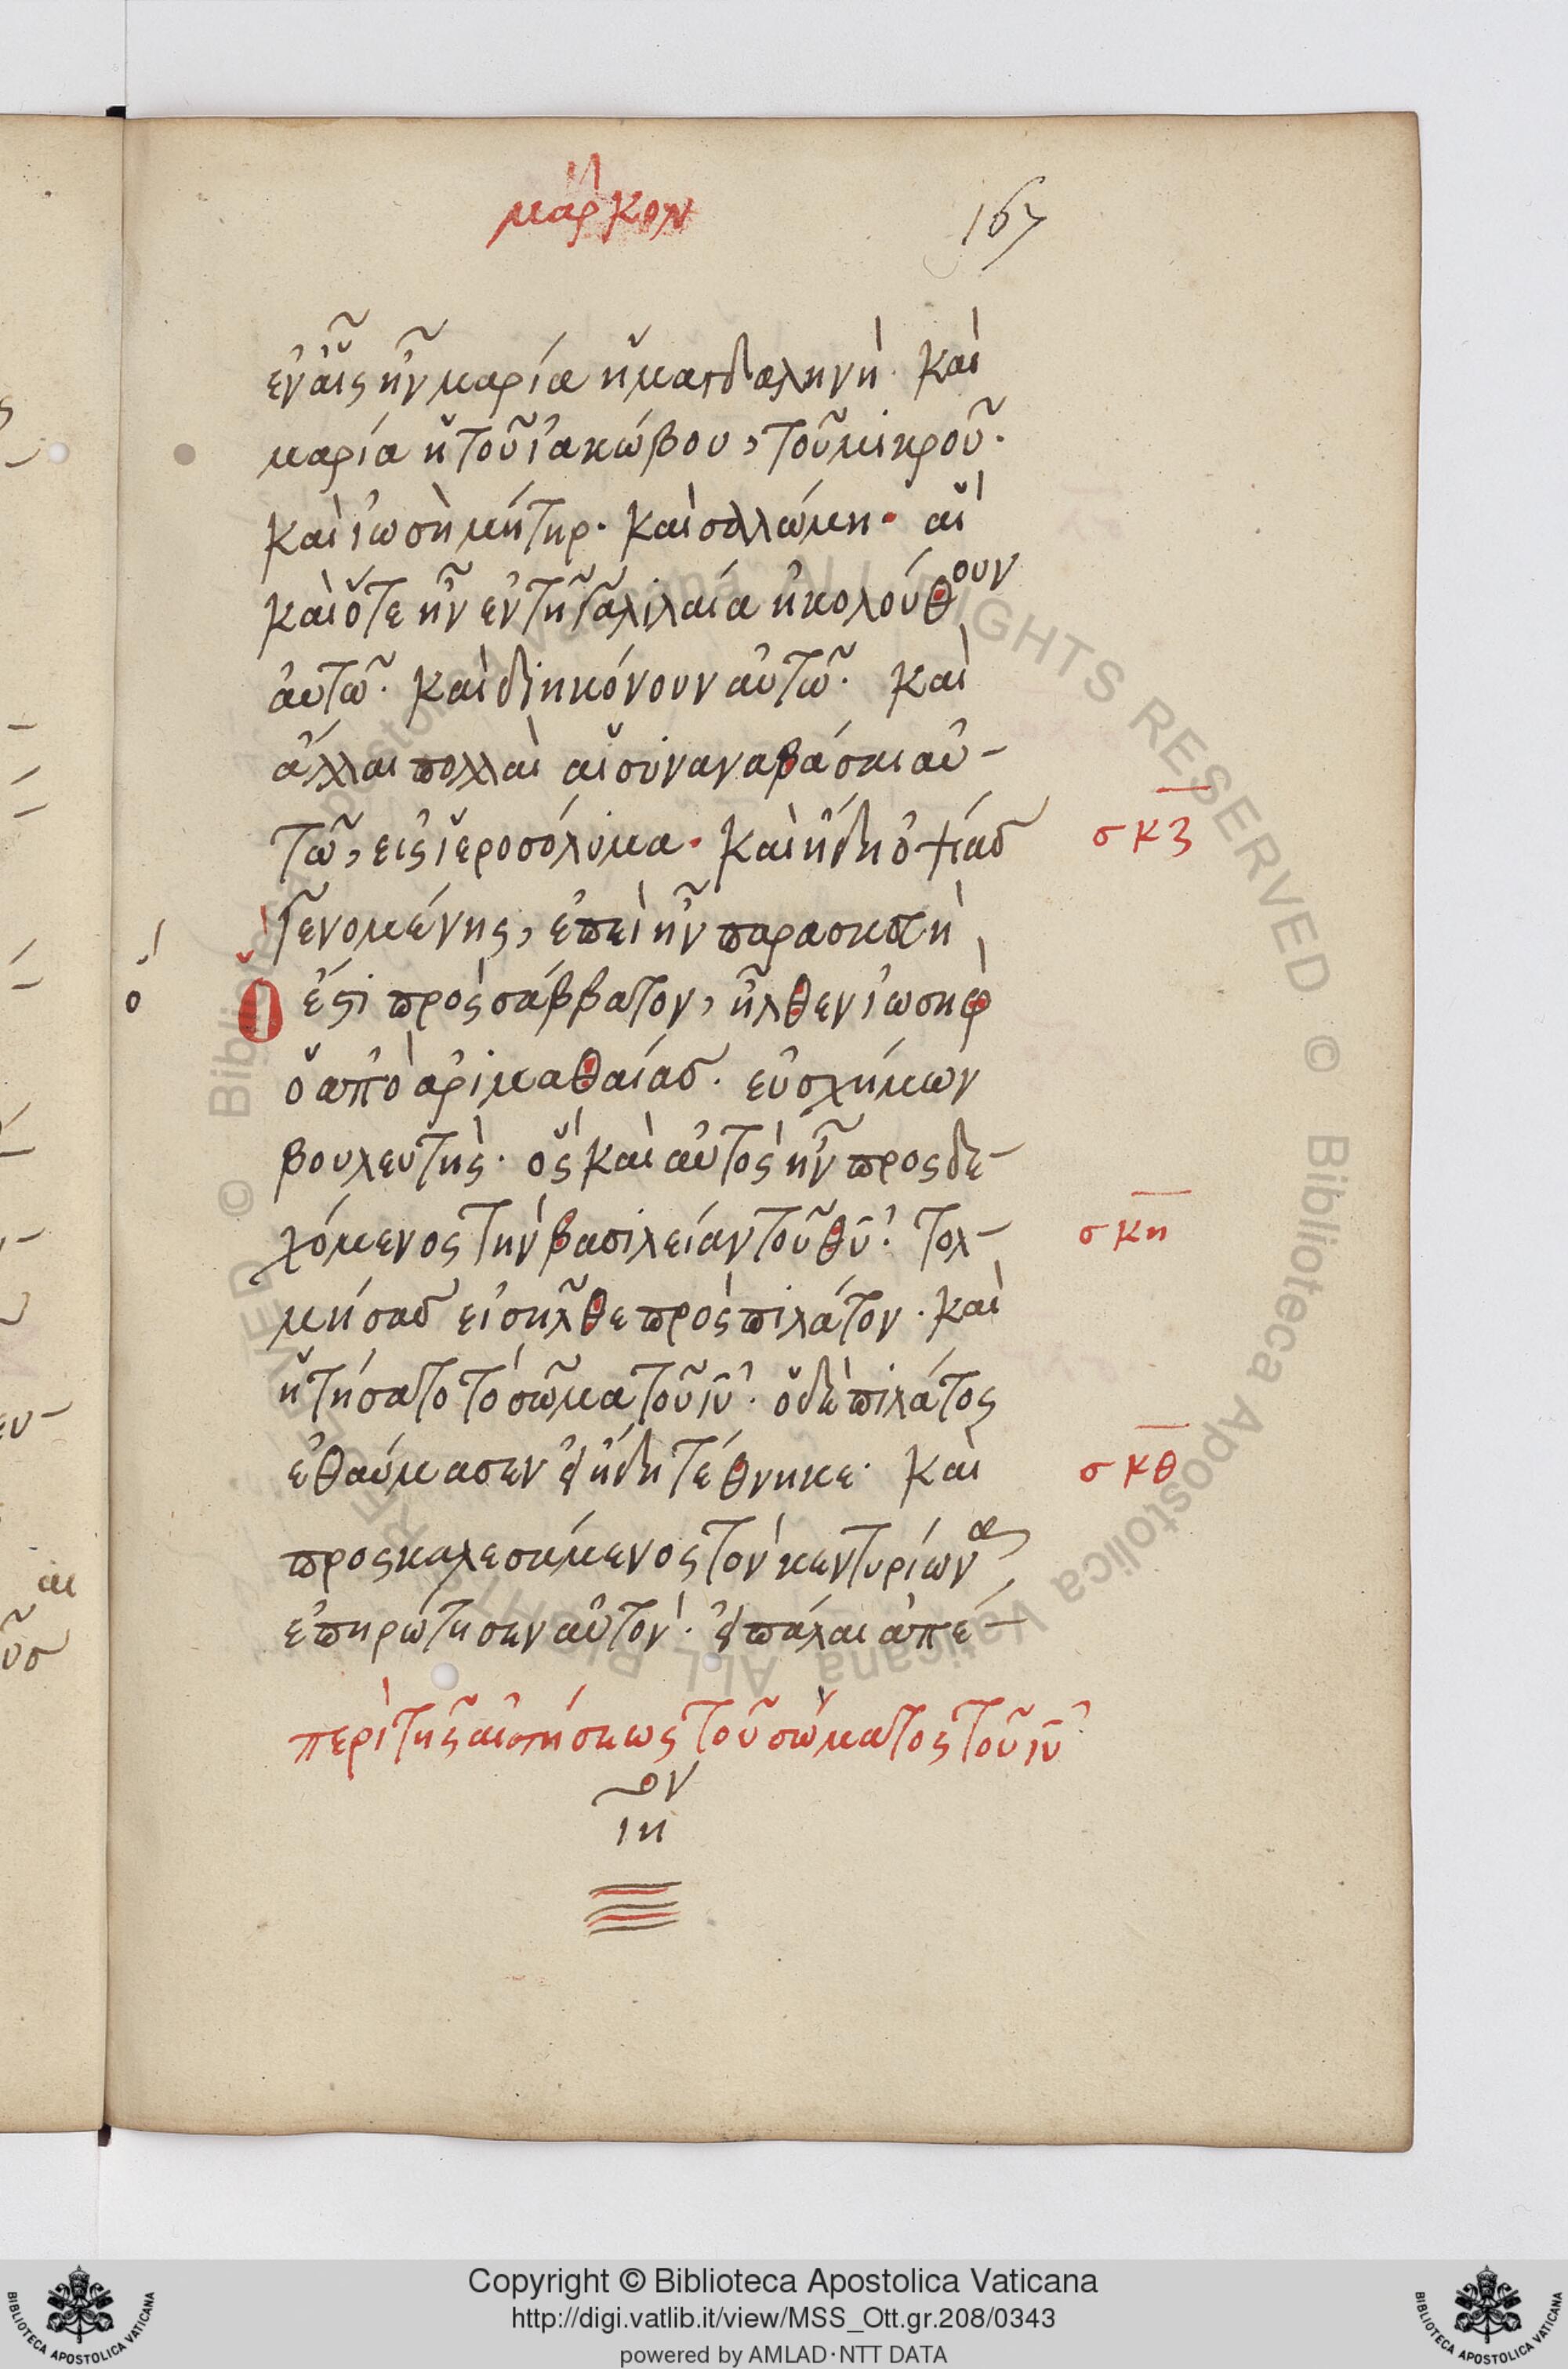 μάρκον
167
ἐν αἷς ἦν μαρία ἡ μαγδαληνὴ· καὶ
μαρία ἡ τοῦ ἰακώβου, τοῦ μικροῦ·
καὶ ἰωσὴ μήτηρ· καὶ σαλλώμη· αἳ
καὶ ὅτε ἦν ἐν τῆ γαλιλαία ἠκολούθουν
αὐτῶ· καὶ διηκόνουν αὐτῶ· καὶ
ἄλλαι πολλαὶ αἱ συναναβάσαι αὐ-
τῶ, εἰς ἱεροσόλυμα· καὶ ἤδη ὀψίας
σκζ
γενομένης, ἐπεὶ ἦν παρασκευὴ
ὅ
Ὅ ἐστι προς σάββατον, ἦλθεν ἰωσὴφ
ὁ ἀπὸ ἀριμαθαίας· εὐσχήμων
βουλευτὴς· ὃς καὶ αὐτὸς ἦν προσδε-
χόμενος τὴν βασιλείαν τοῦ θυ· τολ-
σκη
μήσας εἰσῆλθε πρὸς πιλάτον· καὶ
ἡτήσατο τὸ σῶμα τοῦ ιυ· ὁ δὲ πιλάτος
ἐθαύμασεν εἰ ἤδη τέθνηκε· καὶ
σκθ
προσκαλεσάμενος τὸν κεντυρίωνα
ἐπηρώτησεν αὐτὸν· εἰ πάλαι ἀπέ-
περὶ τῆς αἰτήσεως τοῦ σώματος τοῦ ιυ
ον
ιη
© Biblioteca Apostolica Vaticana ALL RIGHTS RESERVED © Biblioteca Apostolica Vaticana ALL RIGHTS RESERVED
Copyright © Biblioteca Apostolica Vaticana
http://digi.vatlib.it/view/MSS_Ott.gr.208/0343
powered by AMLAD·NTT DATA
BIBLIOTECA APOSTOLICA VATICANA
BIBLIOTECA APOSTOLICA VATICANA